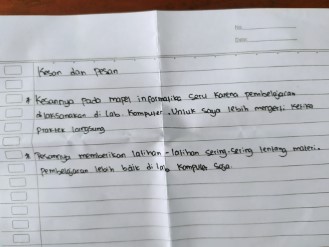 No.
Date
Kesan dan Pesan
* Kesannya pada mapel informatika seru karena pembelajaran
dilaksanakan di lab. komputer. Untuk saya lebih mengerti ketika
praktek langsung
* Pesannya memberikan latihan - latihan sering-sering tentang materi.
pembelajaran lebih baik di lab komputer saja.